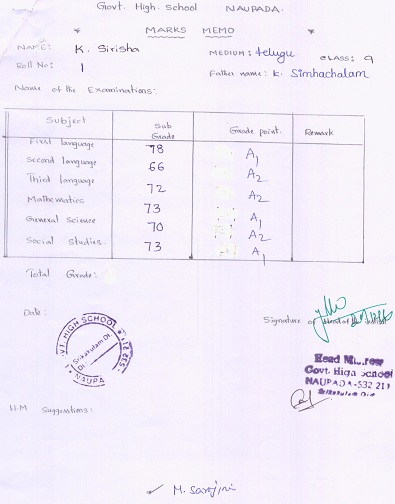 Govt. High school NAUPADA.
MARKS MEMO
NAME: K. Sirisha MEDIUM: telugu CLASS: 9
Roll No: 1 Father name: K. Simhachalam
Name of the Examinations:
Subject Sub Grade Grade point. Remark
First language 78 A1
Second language 66 A2
Third language 72 A2
Mathematics 73 A1
General Science 70 A2
Social Studies. 73 A1
Total Grade:
Date: Signature of Head of the
HIGH SCHOOL
Srikakulam Dt.
NAUPA
Head
Govt. High School
NAUPADA-532 211
Srikakulam Dist
H.M Suggestions:
M. Sarojini